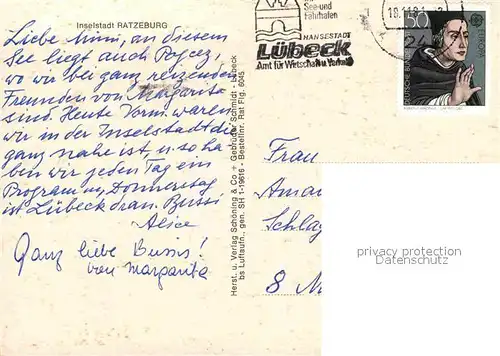 Inselstadt RATZEBURG
Liebe Mimi, an diesem
See liegt auch Pogeez,
wo wir bei ganz reizenden
Freunden von Margarita
sind. Heute Vorm. waren
wir in der Inselstadt die
ganz nahe ist, u. so ha
ben wir jeden Tag ein
Program, Donnerstag
ist Lübeck dran. Bussi
Alice
Ganz liebe Bussis!
von Margarita
Herst. u. Verlag Schöning & Co + Gebrüder Schmidt - Lübeck
bs Luftaufn., gen. SH 1-19616 - Bestellnr. Rat Flg. 6045
See-und
Fährhafen
HANSESTADT
Lübeck
Amt für Wirtschaft u. Verkehr
50
EUROPA
DEUTSCHE BUNDESPOST
Frau
Aman
Schlag
8 M
privacy protection
Datenschutz